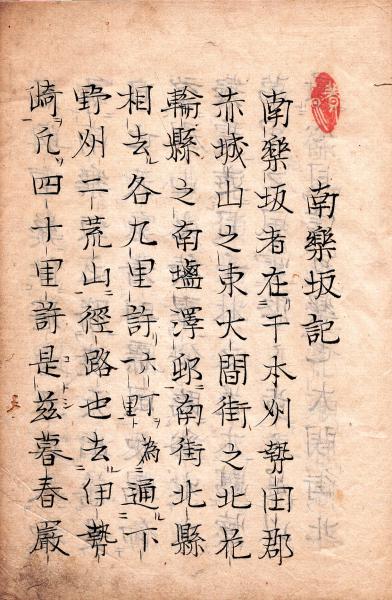 南樂坂記
南樂坂者在于本州勢田郡
赤城山之東大間街之北花
輪縣之南塩澤邨南街北縣
相去各九里許六町為通下
野州二荒山徑路也去伊勢
崎凢四十里許是茲暮春嚴